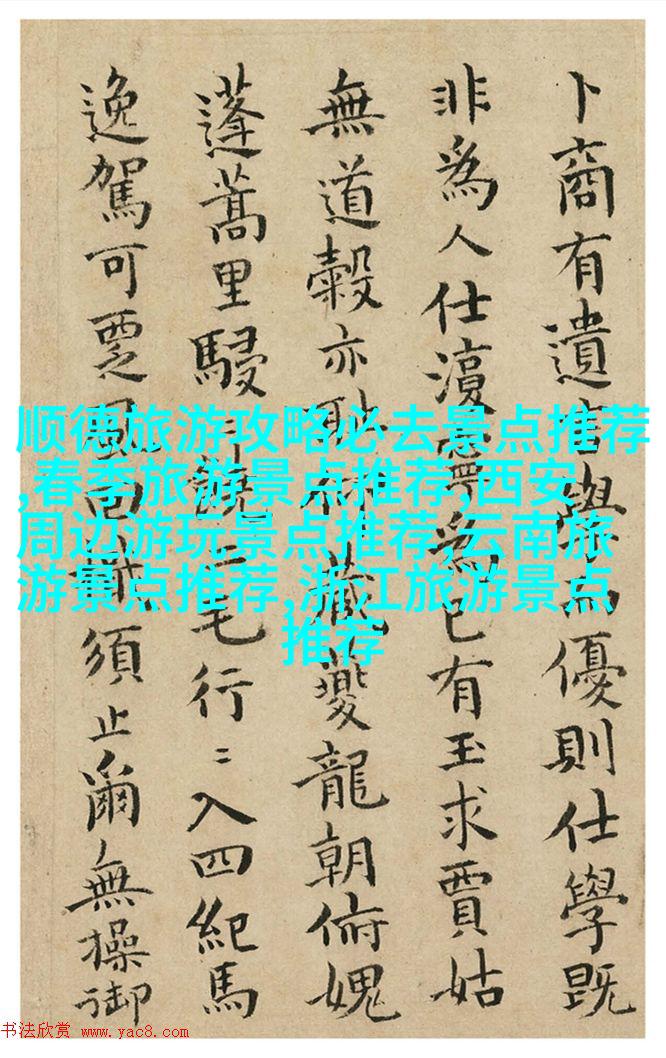 卜商有遺言學而優則仕學既
非爲人仕湏寧爲已有玉求賈姑
無道榖亦恥藏夔龍朝俯媿
蓬蒿里駸饒二毛行〻入四紀馬
逸駕可覂風回須止爾無操御
顺德旅游攻略必去景点推荐
,春季旅游景点推荐,西安
周边游玩景点推荐,云南旅
游景点推荐,浙江旅游景点
推荐
书法欣赏 www.yac8.com